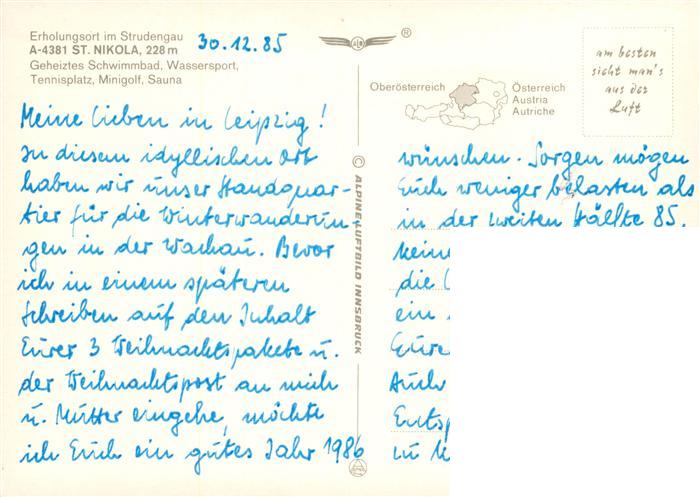 Erholungsort im Strudengau
A-4381 ST. NIKOLA, 228 m
Geheiztes Schwimmbad, Wassersport,
Tennisplatz, Minigolf, Sauna
30.12.85
®
Oberösterreich
Österreich
Austria
Autriche
am besten
sieht man's
aus der
Luft
Meine Lieben in Leipzig!
In diesem idyllischen Ort
haben wir unser Standquar-
tier für die Winterwanderun-
gen in der Wachau. Bevor
ich in einem späteren
Schreiben auf den Inhalt
Eurer 3 Weihnachtspakete u.
der Weihnachtspost an mich
u. Mutter eingehe, möchte
ich Euch ein gutes Jahr 1986
© ALPINE LUFTBILD INNSBRUCK
wünschen. Sorgen mögen
Euch weniger belasten als
in der zweiten Hälfte 85.
die
ein
Auch
zu